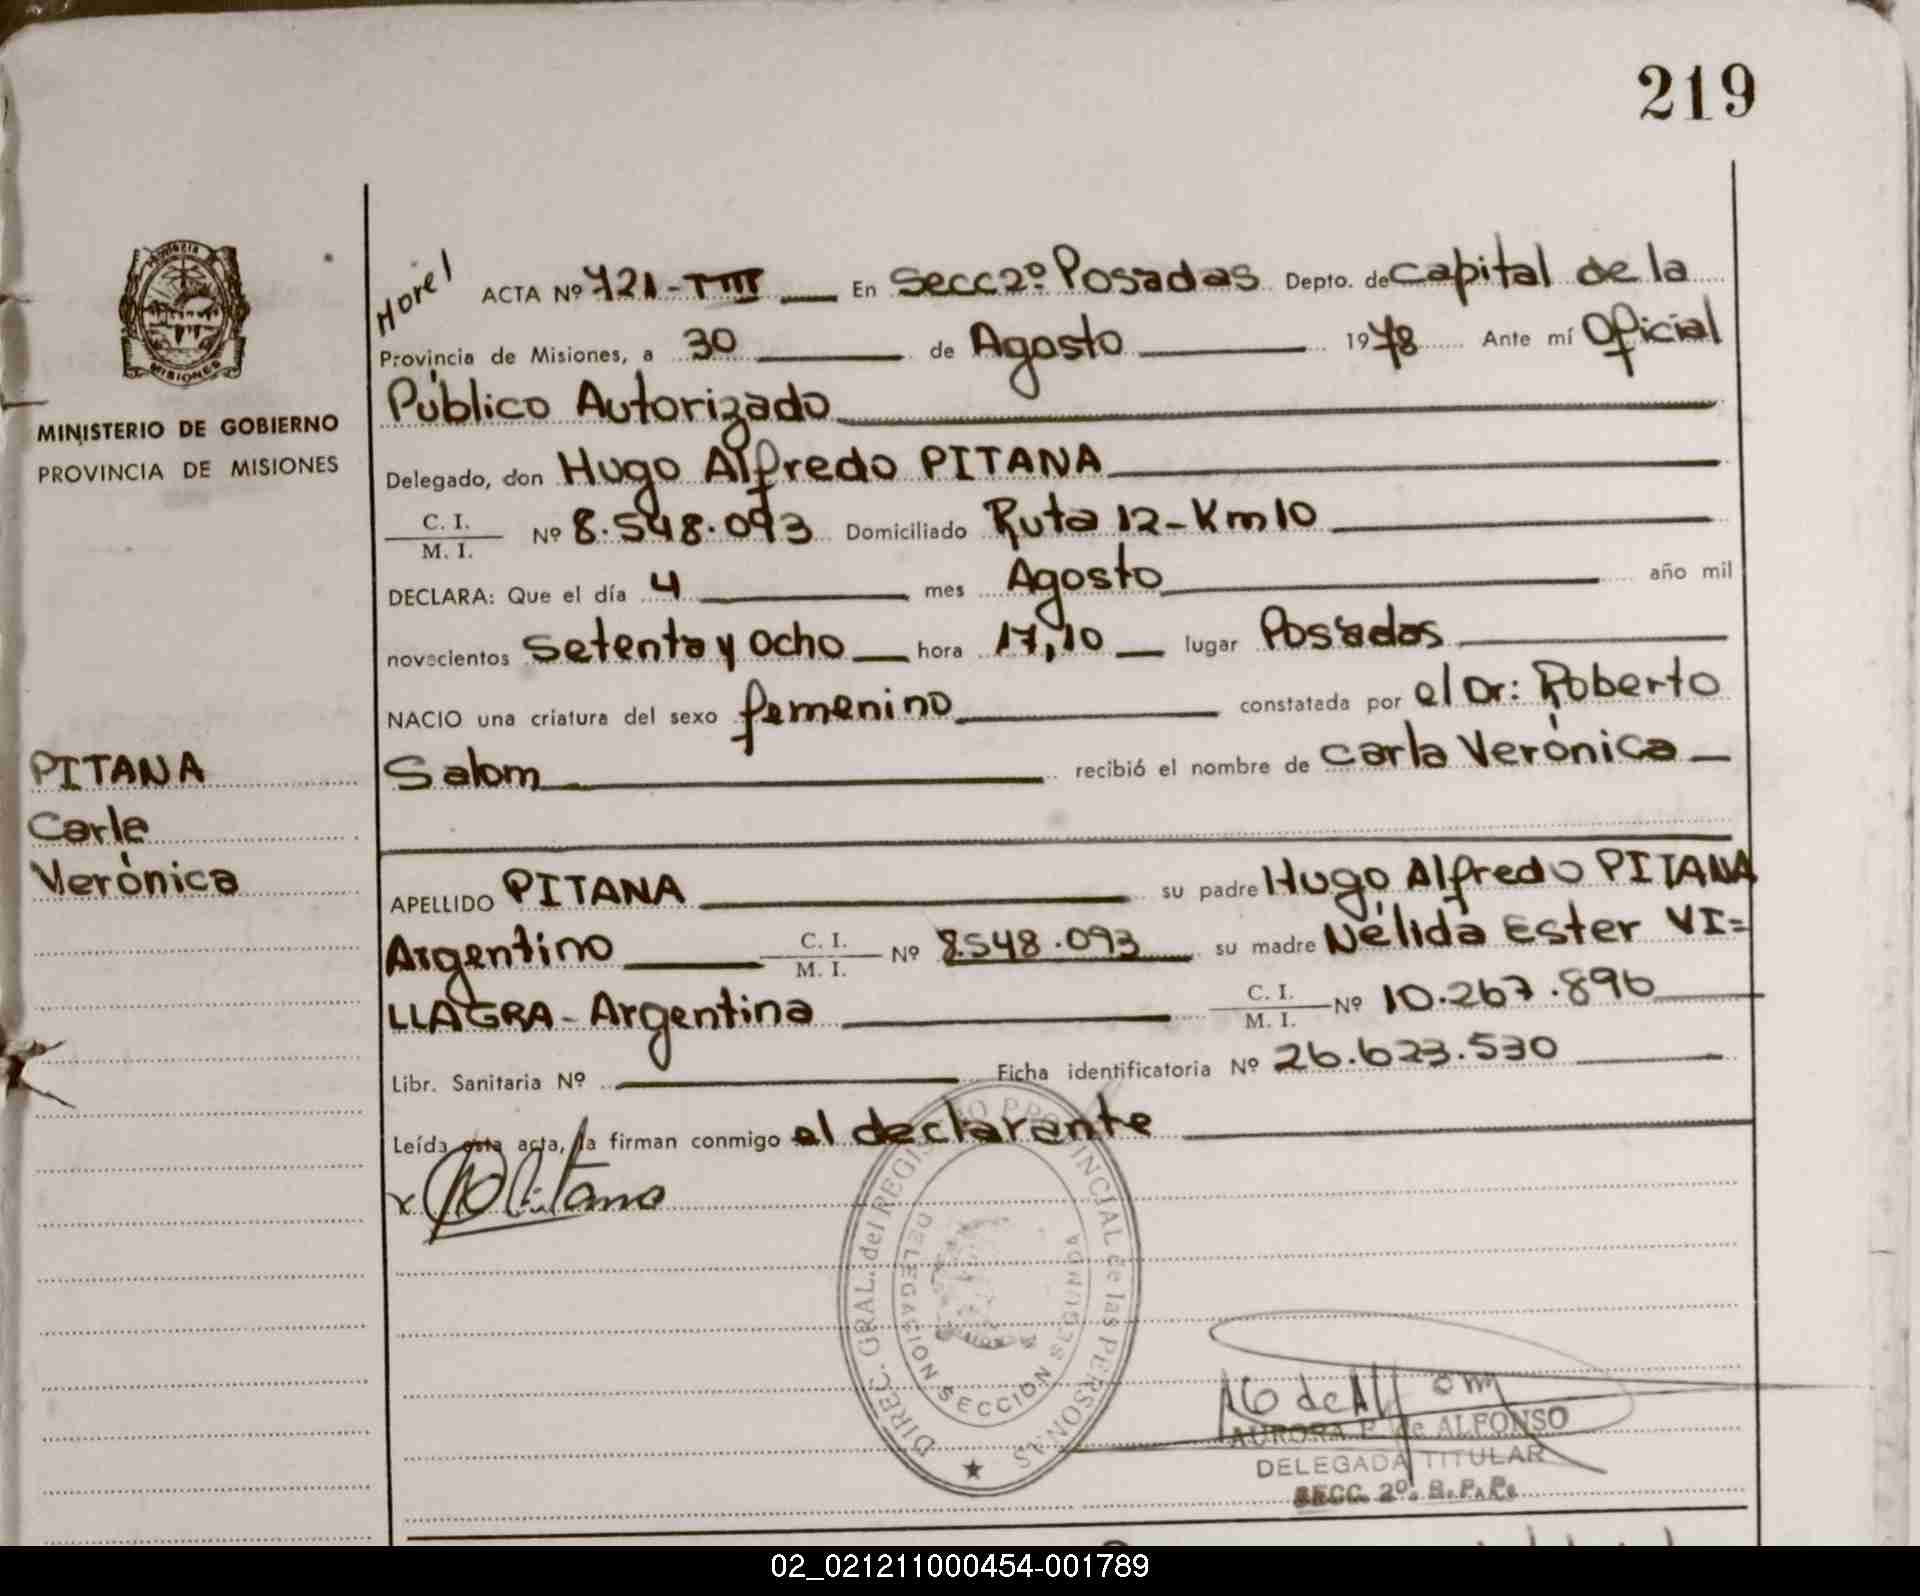 219
Provincia
MISIONES
MINISTERIO DE GOBIERNO
PROVINCIA DE MISIONES
PITANA
Carla
Verónica
ACTA Nº 721-TIII En Secc 2º Posadas Depto. de Capital de la
Provincia de Misiones, a 30 de Agosto 1978 Ante mí Oficial
Público Autorizado
Delegado, don Hugo Alfredo PITANA
C. I.
M. I. Nº 8.548.093 Domiciliado Ruta 12-Km10
DECLARA: Que el día 4 mes Agosto año mil
novecientos Setenta y Ocho hora 17,10 lugar Posadas
NACIO una criatura del sexo femenino constatada por el Dr: Roberto
Salom recibió el nombre de Carla Verónica
APELLIDO PITANA su padre Hugo Alfredo PITANA
Argentino C. I. M. I. Nº 8.548.093 su madre Nélida Ester VI=
LLAGRA- Argentina C. I. M. I. Nº 10.267.896
Libr. Sanitaria Nº Ficha identificatoria Nº 26.623.530
Leída esta acta, la firman conmigo el declarante
DIREC. GRAL. del REGISTRO PROVINCIAL de las PERSONAS
DELEGACION SECCION SEGUNDA
AURORA F de ALFONSO
DELEGADA TITULAR
SECC. 2º. R.P.P.
02_021211000454-001789